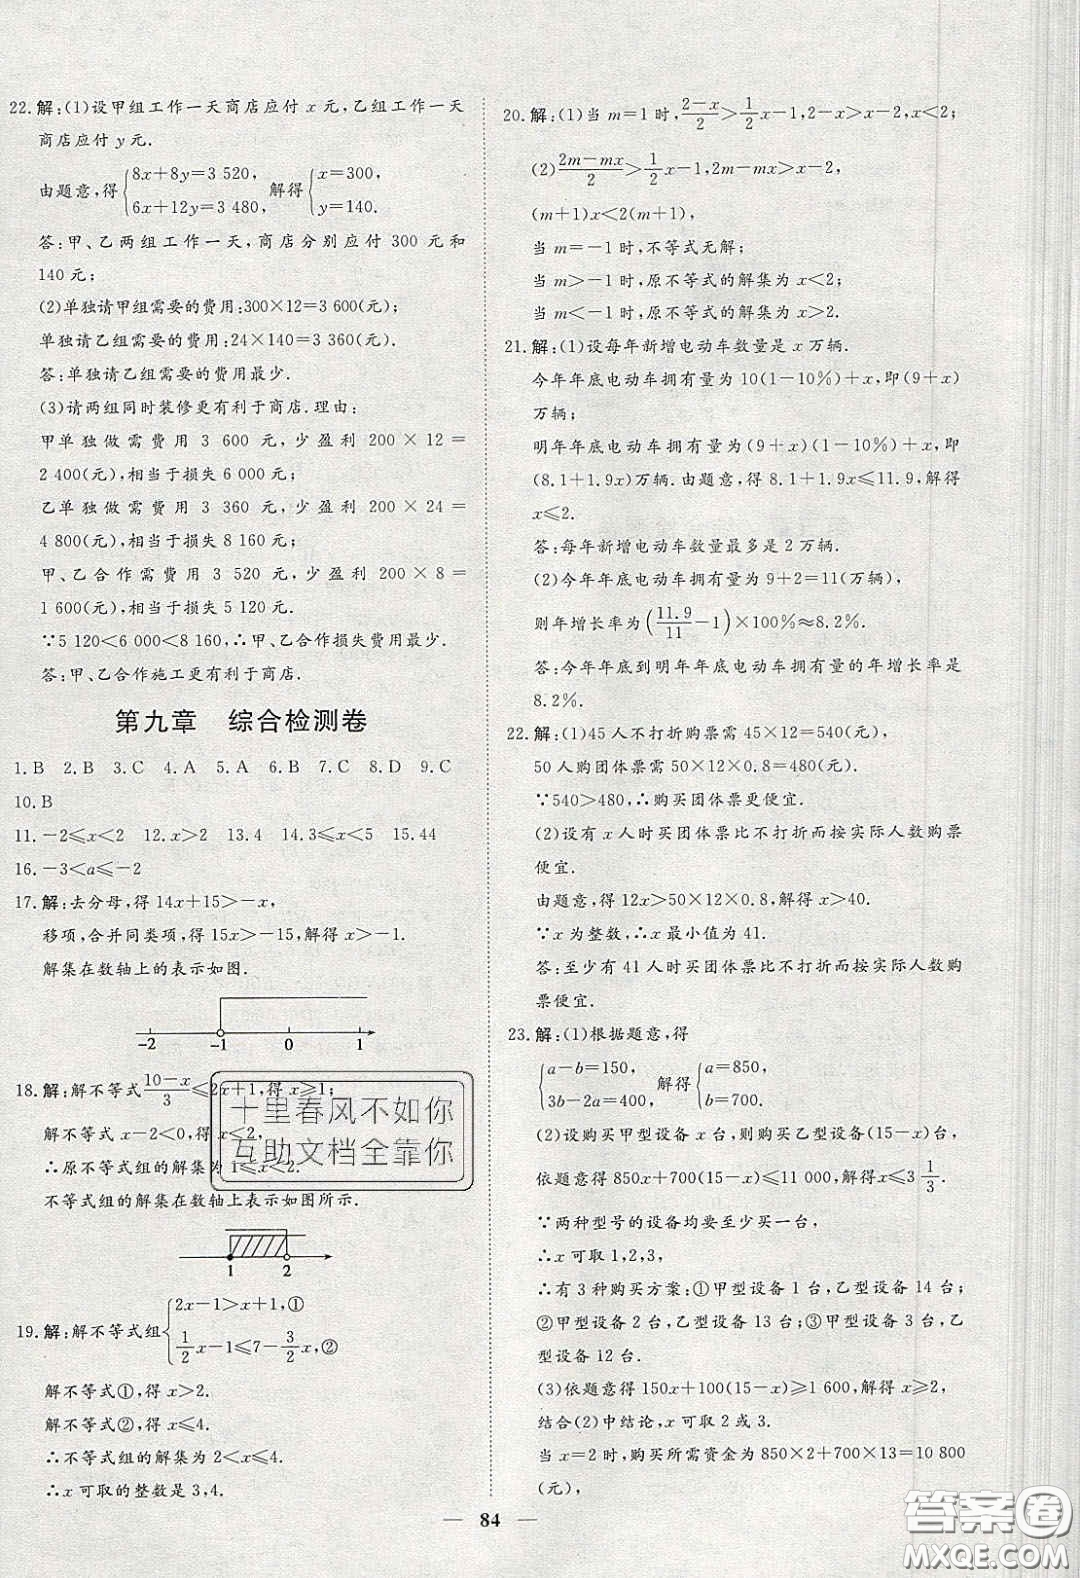 22.解:(1)设甲组工作一天商店应付 x 元,乙组工作一天
商店应付 y 元.
由题意,得{8x+8y=3 520, 6x+12y=3 480, 解得{x=300, y=140.
答:甲、乙两组工作一天,商店分别应付 300 元和
140 元;
(2)单独请甲组需要的费用:300×12=3 600(元);
单独请乙组需要的费用:24×140=3 360(元).
答:单独请乙组需要的费用最少.
(3)请两组同时装修更有利于商店.理由:
甲单独做需费用 3 600 元,少盈利 200×12=
2 400(元),相当于损失 6 000 元;
乙单独做需费用 3 360 元,少盈利 200×24=
4 800(元),相当于损失 8 160 元;
甲、乙合作需费用 3 520 元,少盈利 200×8=
1 600(元),相当于损失 5 120 元.
∵5 120<6 000<8 160,∴甲、乙合作损失费用最少.
答:甲、乙合作施工更有利于商店.
第九章 综合检测卷
1.B 2.B 3.C 4.A 5.A 6.B 7.C 8.D 9.C
10.B
11.−2≤x<2 12.x>2 13.4 14.3≤x<5 15.44
16.−3<a≤−2
17.解:去分母,得 14x+15>−x,
移项,合并同类项,得 15x>−15,解得 x>−1.
解集在数轴上的表示如图.
−2 −1 0 1
18.解:解不等式(10−x)/3≤2x+1,得 x≥1;
解不等式 x−2<0,得 x<2,
∴原不等式组的解集为 1≤x<2.
不等式组的解集在数轴上表示如图所示.
1 2
19.解:解不等式组{2x−1>x+1,① 1/2x−1≤7−3/2x,②
解不等式①,得 x>2.
解不等式②,得 x≤4.
∴不等式组的解集为 2<x≤4.
∴x 可取的整数是 3,4.
20.解:(1)当 m=1 时,(2−x)/2>1/2x−1,2−x>x−2,x<2;
(2)(2m−mx)/2>1/2x−1,2m−mx>x−2,
(m+1)x<2(m+1),
当 m=−1 时,不等式无解;
当 m>−1 时,原不等式的解集为 x<2;
当 m<−1 时,原不等式的解集为 x>2.
21.解:(1)设每年新增电动车数量是 x 万辆.
今年年底电动车拥有量为 10(1−10%)+x,即(9+x)
万辆;
明年年底电动车拥有量为(9+x)(1−10%)+x,即
(8.1+1.9x)万辆.由题意,得 8.1+1.9x≤11.9,解得
x≤2.
答:每年新增电动车数量最多是 2 万辆.
(2)今年年底电动车拥有量为 9+2=11(万辆),
则年增长率为(11.9/11−1)×100%≈8.2%.
答:今年年底到明年年底电动车拥有量的年增长率是
8.2%.
22.解:(1)45 人不打折购票需 45×12=540(元),
50 人购团体票需 50×12×0.8=480(元).
∵540>480,∴购买团体票更便宜.
(2)设有 x 人时买团体票比不打折而按实际人数购票
便宜.
由题意,得 12x>50×12×0.8,解得 x>40.
∵x 为整数,∴x 最小值为 41.
答:至少有 41 人时买团体票比不打折而按实际人数购
票便宜.
23.解:(1)根据题意,得
{a−b=150, 3b−2a=400, 解得{a=850, b=700.
(2)设购买甲型设备 x 台,则购买乙型设备(15−x)台,
依题意得 850x+700(15−x)≤11 000,解得 x≤3 1/3.
∵两种型号的设备均要至少买一台,
∴x 可取 1,2,3,
∴有 3 种购买方案:①甲型设备 1 台,乙型设备 14 台;
②甲型设备 2 台,乙型设备 13 台;③甲型设备 3 台,乙
型设备 12 台.
(3)依题意得 150x+100(15−x)≥1 600,解得 x≥2,
结合(2)中结论,x 可取 2 或 3.
当 x=2 时,购买所需资金为 850×2+700×13=10 800
(元),
84
十里春风不如你
互助文档全靠你
答案圈
MXQE.COM